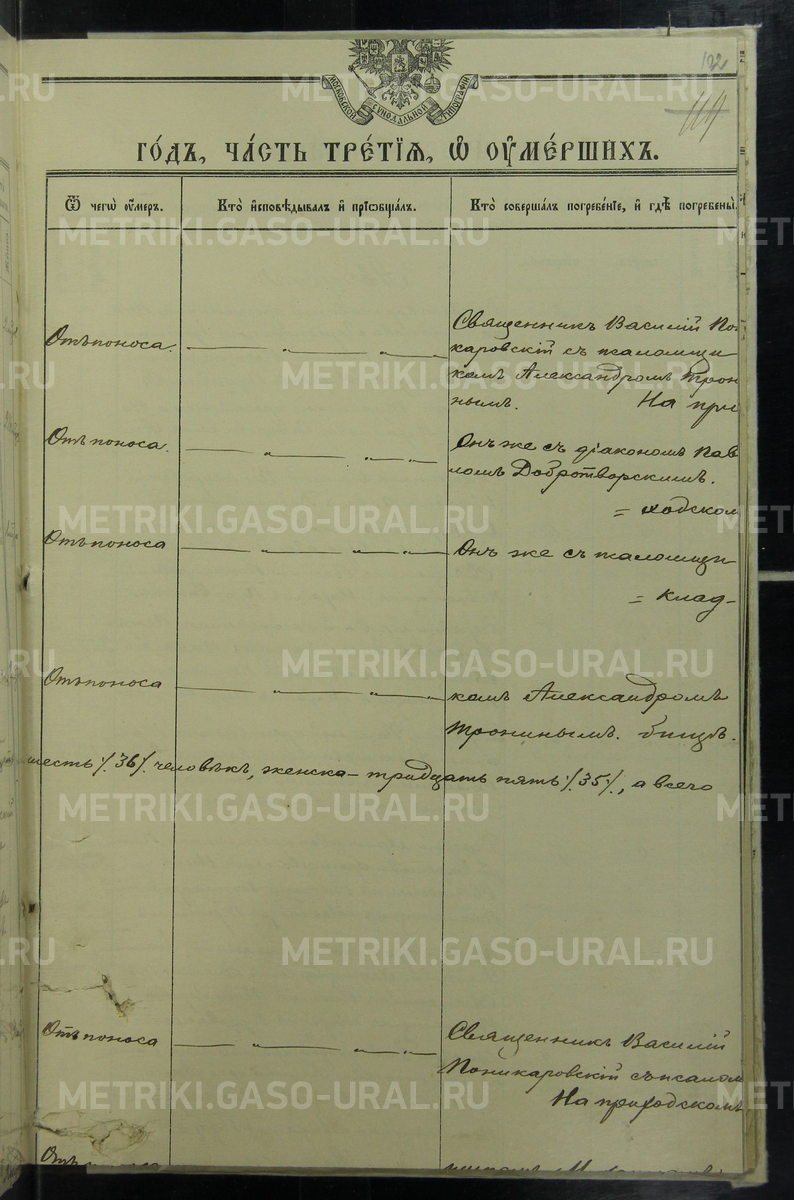 122
119
МОСКОВСКОЙ СѴНОДАЛЬНОЙ ТИПОГРАФИИ
ГО́ДЪ, ЧА́СТЬ ТРЕ́ТЇѦ, Ѡ҆ ОУ҆МЕ́РШИХЪ.
Ѿ чегѡ̀ ᲂу҆́меръ.
Кто̀ и҆сповѣ́дывалъ и҆ прїѡбща́лъ.
Кто̀ соверша́лъ погребе́нїе, и҆ гдѣ̀ погребены̀.
Священникъ Василій По-
Отъ поноса.
каровскій съ псаломщи
комъ Александромъ Трон
нымъ. На при
Отъ поноса.
Онъ же съ діакономъ Пав
ломъ Добротворскимъ.
= ходском
Отъ поноса
Онъ же съ псаломщи
= клад-
Отъ поноса
комъ Александромъ
Трониным. бищѣ.
шесть /36/ человѣкъ, женска – тридцать пять /35/, а всего
Отъ поноса
Священникъ Василій
Поникаровскій съ псалом
На приходскомъ
METRIKI.GASO-URAL.RU